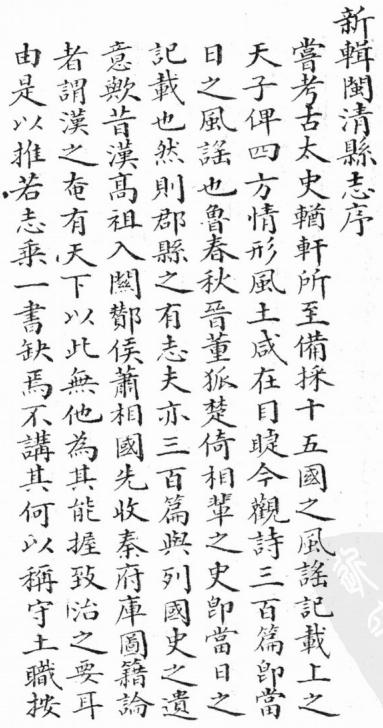 新輯閩清縣志序
嘗考古太史輶軒所至備採十五國之風謠記載上之
天子俾四方情形風土咸在目睫今觀詩三百篇即當
日之風謠也魯春秋晉董狐楚倚相輩之史即當日之
記載也然則郡縣之有志夫亦三百篇與列國史之遺
意歟昔漢高祖入關酇侯蕭相國先收秦府庫圖籍論
者謂漢之奄有天下以此無他為其能握致治之要耳
由是以推若志乘一書缺焉不講其何以稱守土職按